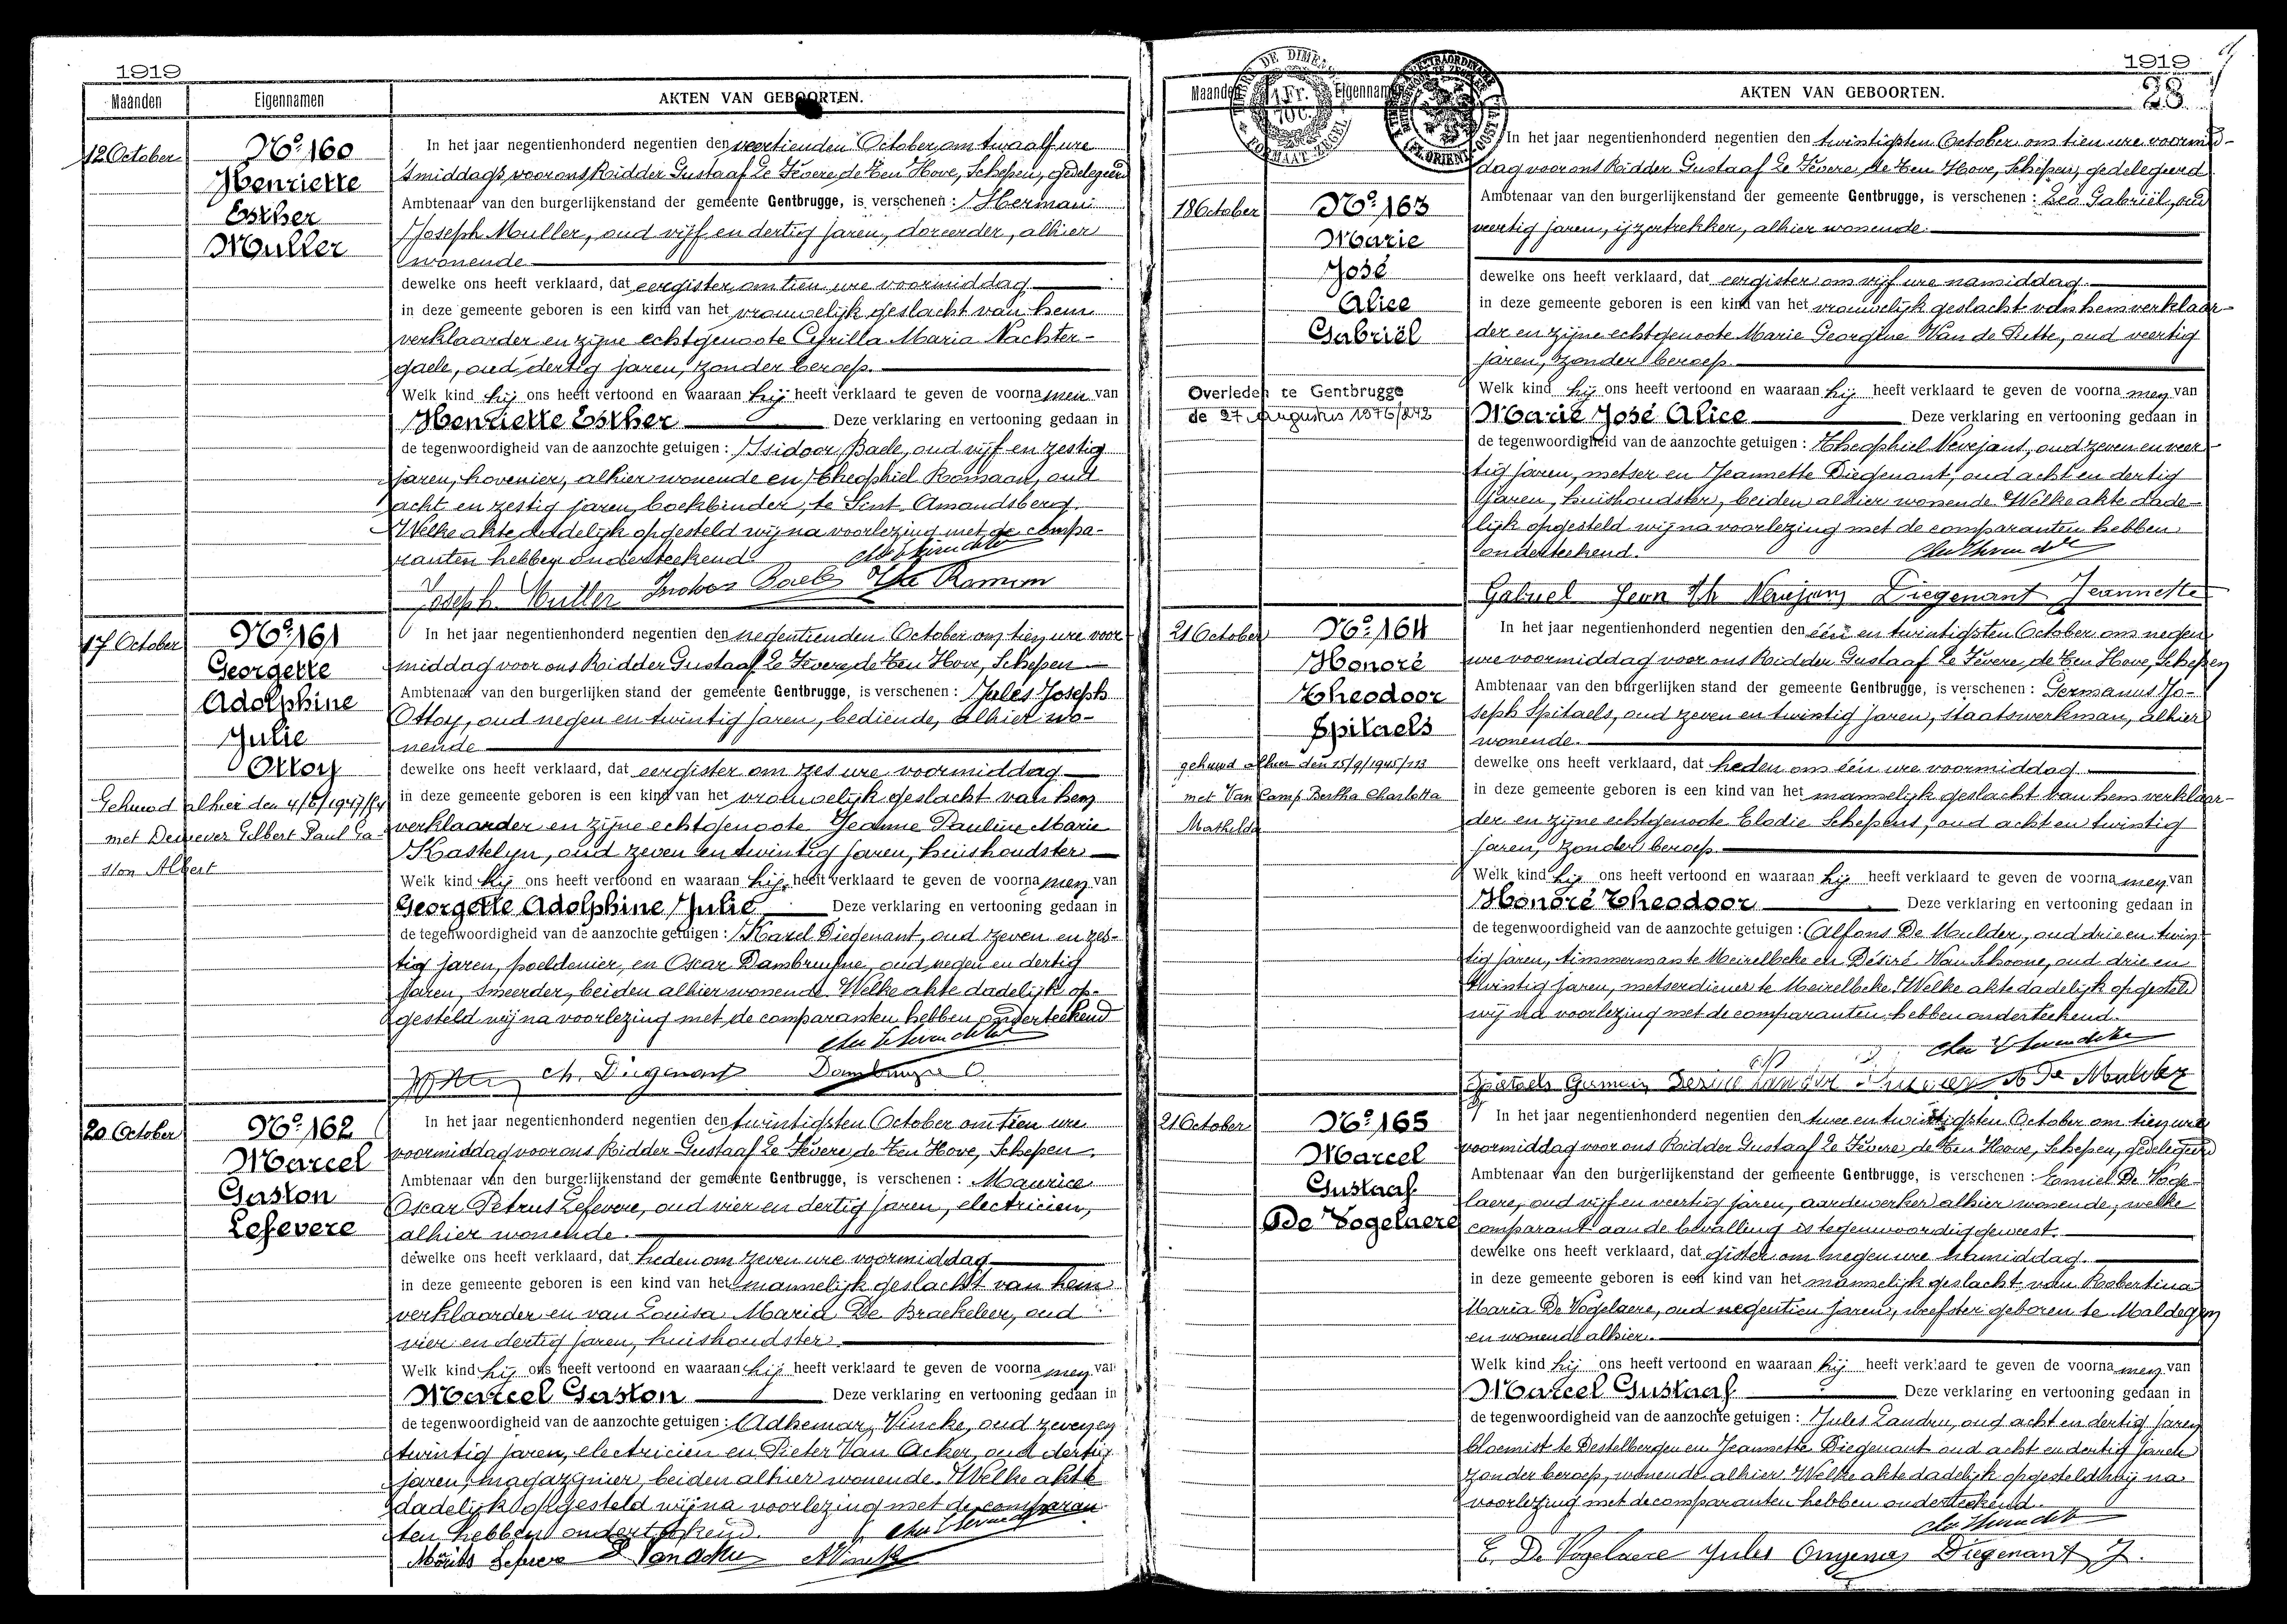 1919
Maanden
Eigennamen
AKTEN VAN GEBOORTEN.
12 October
No. 160
Henriette
Esther
Muller
In het jaar negentienhonderd negentien den veertienden October om twaalf ure
's middags voor ons Ridder Gustaaf Le Fevere de Ten Hove, Schepen, gedelegeerd
Ambtenaar van den burgerlijkenstand der gemeente Gentbrugge, is verschenen : Herman
Joseph Muller, oud vijf en dertig jaren, alhier
wonende
dewelke ons heeft verklaard, dat eergister om tien ure voormiddag
in deze gemeente geboren is een kind van het vrouwelijk geslacht van hem
verklaarder en zijne echtgenoote Cyrilla Maria Nachter-
gaele, oud dertig jaren, zonder beroep.
Welk kind hij ons heeft vertoond en waaraan hij heeft verklaard te geven de voornamen van
Henriette Esther Deze verklaring en vertooning gedaan in
de tegenwoordigheid van de aanzochte getuigen : Isidoor Baele, oud vijf en zestig
jaren, hovenier, alhier wonende en Theophiel Romaan, oud
acht en zestig jaren, boekbinder, te Sint Amandsberg.
Welke akte dadelijk opgesteld wij na voorlezing met de compa-
ranten hebben onderteekend.
Joseph Muller
17 October
No. 161
Georgette
Adolphine
Julie
Ottoy
Gehuwd alhier den 4/6/1947/
met Dewever Gilbert Paul Ga-
ston Albert
In het jaar negentienhonderd negentien den negentienden October om tien ure voor
middag voor ons Ridder Gustaaf Le Fevere de Ten Hove, Schepen
Ambtenaar van den burgerlijken stand der gemeente Gentbrugge, is verschenen : Jules Joseph
Ottoy, oud negen en twintig jaren, bediende, alhier wo-
nende
dewelke ons heeft verklaard, dat eergister om zes ure voormiddag
in deze gemeente geboren is een kind van het vrouwelijk geslacht van hem
verklaarder en zijne echtgenoote Jeanne Pauline Marie
Kastelyn, oud zeven en twintig jaren, huishoudster
Welk kind hij ons heeft vertoond en waaraan hij heeft verklaard te geven de voornamen van
Georgette Adolphine Julie Deze verklaring en vertooning gedaan in
de tegenwoordigheid van de aanzochte getuigen : Karel Diegenant, oud zeven en zes-
tig jaren, poeldenier, en Oscar Dambruyne, oud negen en dertig
jaren, smeerder, beiden alhier wonende. Welke akte dadelijk op-
gesteld wij na voorlezing met de comparanten hebben onderteekend
Ch. Diegenant Dambruyne O.
20 October
No. 162
Marcel
Gaston
Lefevere
In het jaar negentienhonderd negentien den twintigsten October om tien ure
voormiddag voor ons Ridder Gustaaf Le Fevere de Ten Hove, Schepen,
Ambtenaar van den burgerlijkenstand der gemeente Gentbrugge, is verschenen : Maurice
Oscar Petrus Lefevere, oud vier en dertig jaren, electricien,
alhier wonende.
dewelke ons heeft verklaard, dat heden om zeven ure voormiddag
in deze gemeente geboren is een kind van het mannelijk geslacht van hem
verklaarder en van Louisa Maria De Braekeleer, oud
vier en dertig jaren, huishoudster.
Welk kind hij ons heeft vertoond en waaraan hij heeft verklaard te geven de voornamen van
Marcel Gaston Deze verklaring en vertooning gedaan in
de tegenwoordigheid van de aanzochte getuigen : Adhemar Vincke, oud zeven en
twintig jaren, electricien en Pieter Van Acker, oud dertig
jaren, magazynier, beiden alhier wonende. Welke akte
dadelijk opgesteld wij na voorlezing met de comparan-
ten hebben onderteekend.
1919
28
Maanden
Eigennamen
AKTEN VAN GEBOORTEN.
18 October
No. 163
Marie
José
Alice
Gabriël
Overleden te Gentbrugge
de 27 Augustus 1976/242
In het jaar negentienhonderd negentien den twintigsten October om tien ure voormid-
dag voor ons Ridder Gustaaf Le Fevere de Ten Hove, Schepen, gedelegeerd
Ambtenaar van den burgerlijkenstand der gemeente Gentbrugge, is verschenen : Leo Gabriël, oud
veertig jaren, ijzertrekker, alhier wonende.
dewelke ons heeft verklaard, dat eergister om vijf ure namiddag
in deze gemeente geboren is een kind van het vrouwelijk geslacht van hem verklaar-
der en zijne echtgenoote Marie Georgine Van de Putte, oud veertig
jaren, zonder beroep.
Welk kind hij ons heeft vertoond en waaraan hij heeft verklaard te geven de voornamen van
Marie José Alice Deze verklaring en vertooning gedaan in
de tegenwoordigheid van de aanzochte getuigen : Theophiel Verejans, oud zeven en veer-
tig jaren, metser en Jeannette Diegenant, oud acht en dertig
jaren, huishoudster, beiden alhier wonende. Welke akte dade-
lijk opgesteld wij na voorlezing met de comparanten hebben
onderteekend.
Diegenant Jeannette
21 October
No. 164
Honoré
Theodoor
Spitaels
gehuwd alhier den 15/9/1945/113
met Van Camp Bertha Charlotta
Mathilda
In het jaar negentienhonderd negentien den één en twintigsten October om negen
ure voormiddag voor ons Ridder Gustaaf Le Fevere de Ten Hove, Schepen
Ambtenaar van den burgerlijken stand der gemeente Gentbrugge, is verschenen : Germanus Jo-
seph Spitaels, oud zeven en twintig jaren, staatswerkman, alhier
wonende.
dewelke ons heeft verklaard, dat heden om één ure voormiddag
in deze gemeente geboren is een kind van het mannelijk geslacht van hem verklaar-
der en zijne echtgenoote Elodie Schepens, oud acht en twintig
jaren, zonder beroep.
Welk kind hij ons heeft vertoond en waaraan hij heeft verklaard te geven de voornamen van
Honoré Theodoor Deze verklaring en vertooning gedaan in
de tegenwoordigheid van de aanzochte getuigen : Alfons De Mulder, oud drie en twin-
tig jaren, timmerman te Meirelbeke en Désiré Van Schoone, oud drie en
twintig jaren, metserdiener te Meirelbeke. Welke akte dadelijk opgesteld
wij na voorlezing met de comparanten hebben onderteekend.
A De Mulder
21 October
No. 165
Marcel
Gustaaf
De Vogelaere
In het jaar negentienhonderd negentien den twee en twintigsten October om tien ure
voormiddag voor ons Ridder Gustaaf Le Fevere de Ten Hove, Schepen, gedelegeerd
Ambtenaar van den burgerlijkenstand der gemeente Gentbrugge, is verschenen : Camiel De Voge-
laere, oud vijf en veertig jaren, aardewerker alhier wonende, welke
comparant aan de bevalling is tegenwoordig geweest.
dewelke ons heeft verklaard, dat gister om negen ure namiddag.
in deze gemeente geboren is een kind van het mannelijk geslacht van Robertina
Maria De Vogelaere, oud negentien jaren, weefster geboren te Maldegem
en wonende alhier.
Welk kind hij ons heeft vertoond en waaraan hij heeft verklaard te geven de voornamen van
Marcel Gustaaf Deze verklaring en vertooning gedaan in
de tegenwoordigheid van de aanzochte getuigen : Jules oud acht en dertig jaren
bloemist te Destelbergen en Jeannette Diegenant oud acht en dertig jaren
zonder beroep, wonende alhier. Welke akte dadelijk opgesteld wij na
voorlezing met de comparanten hebben onderteekend.
De Vogelaere Jules Diegenant J.